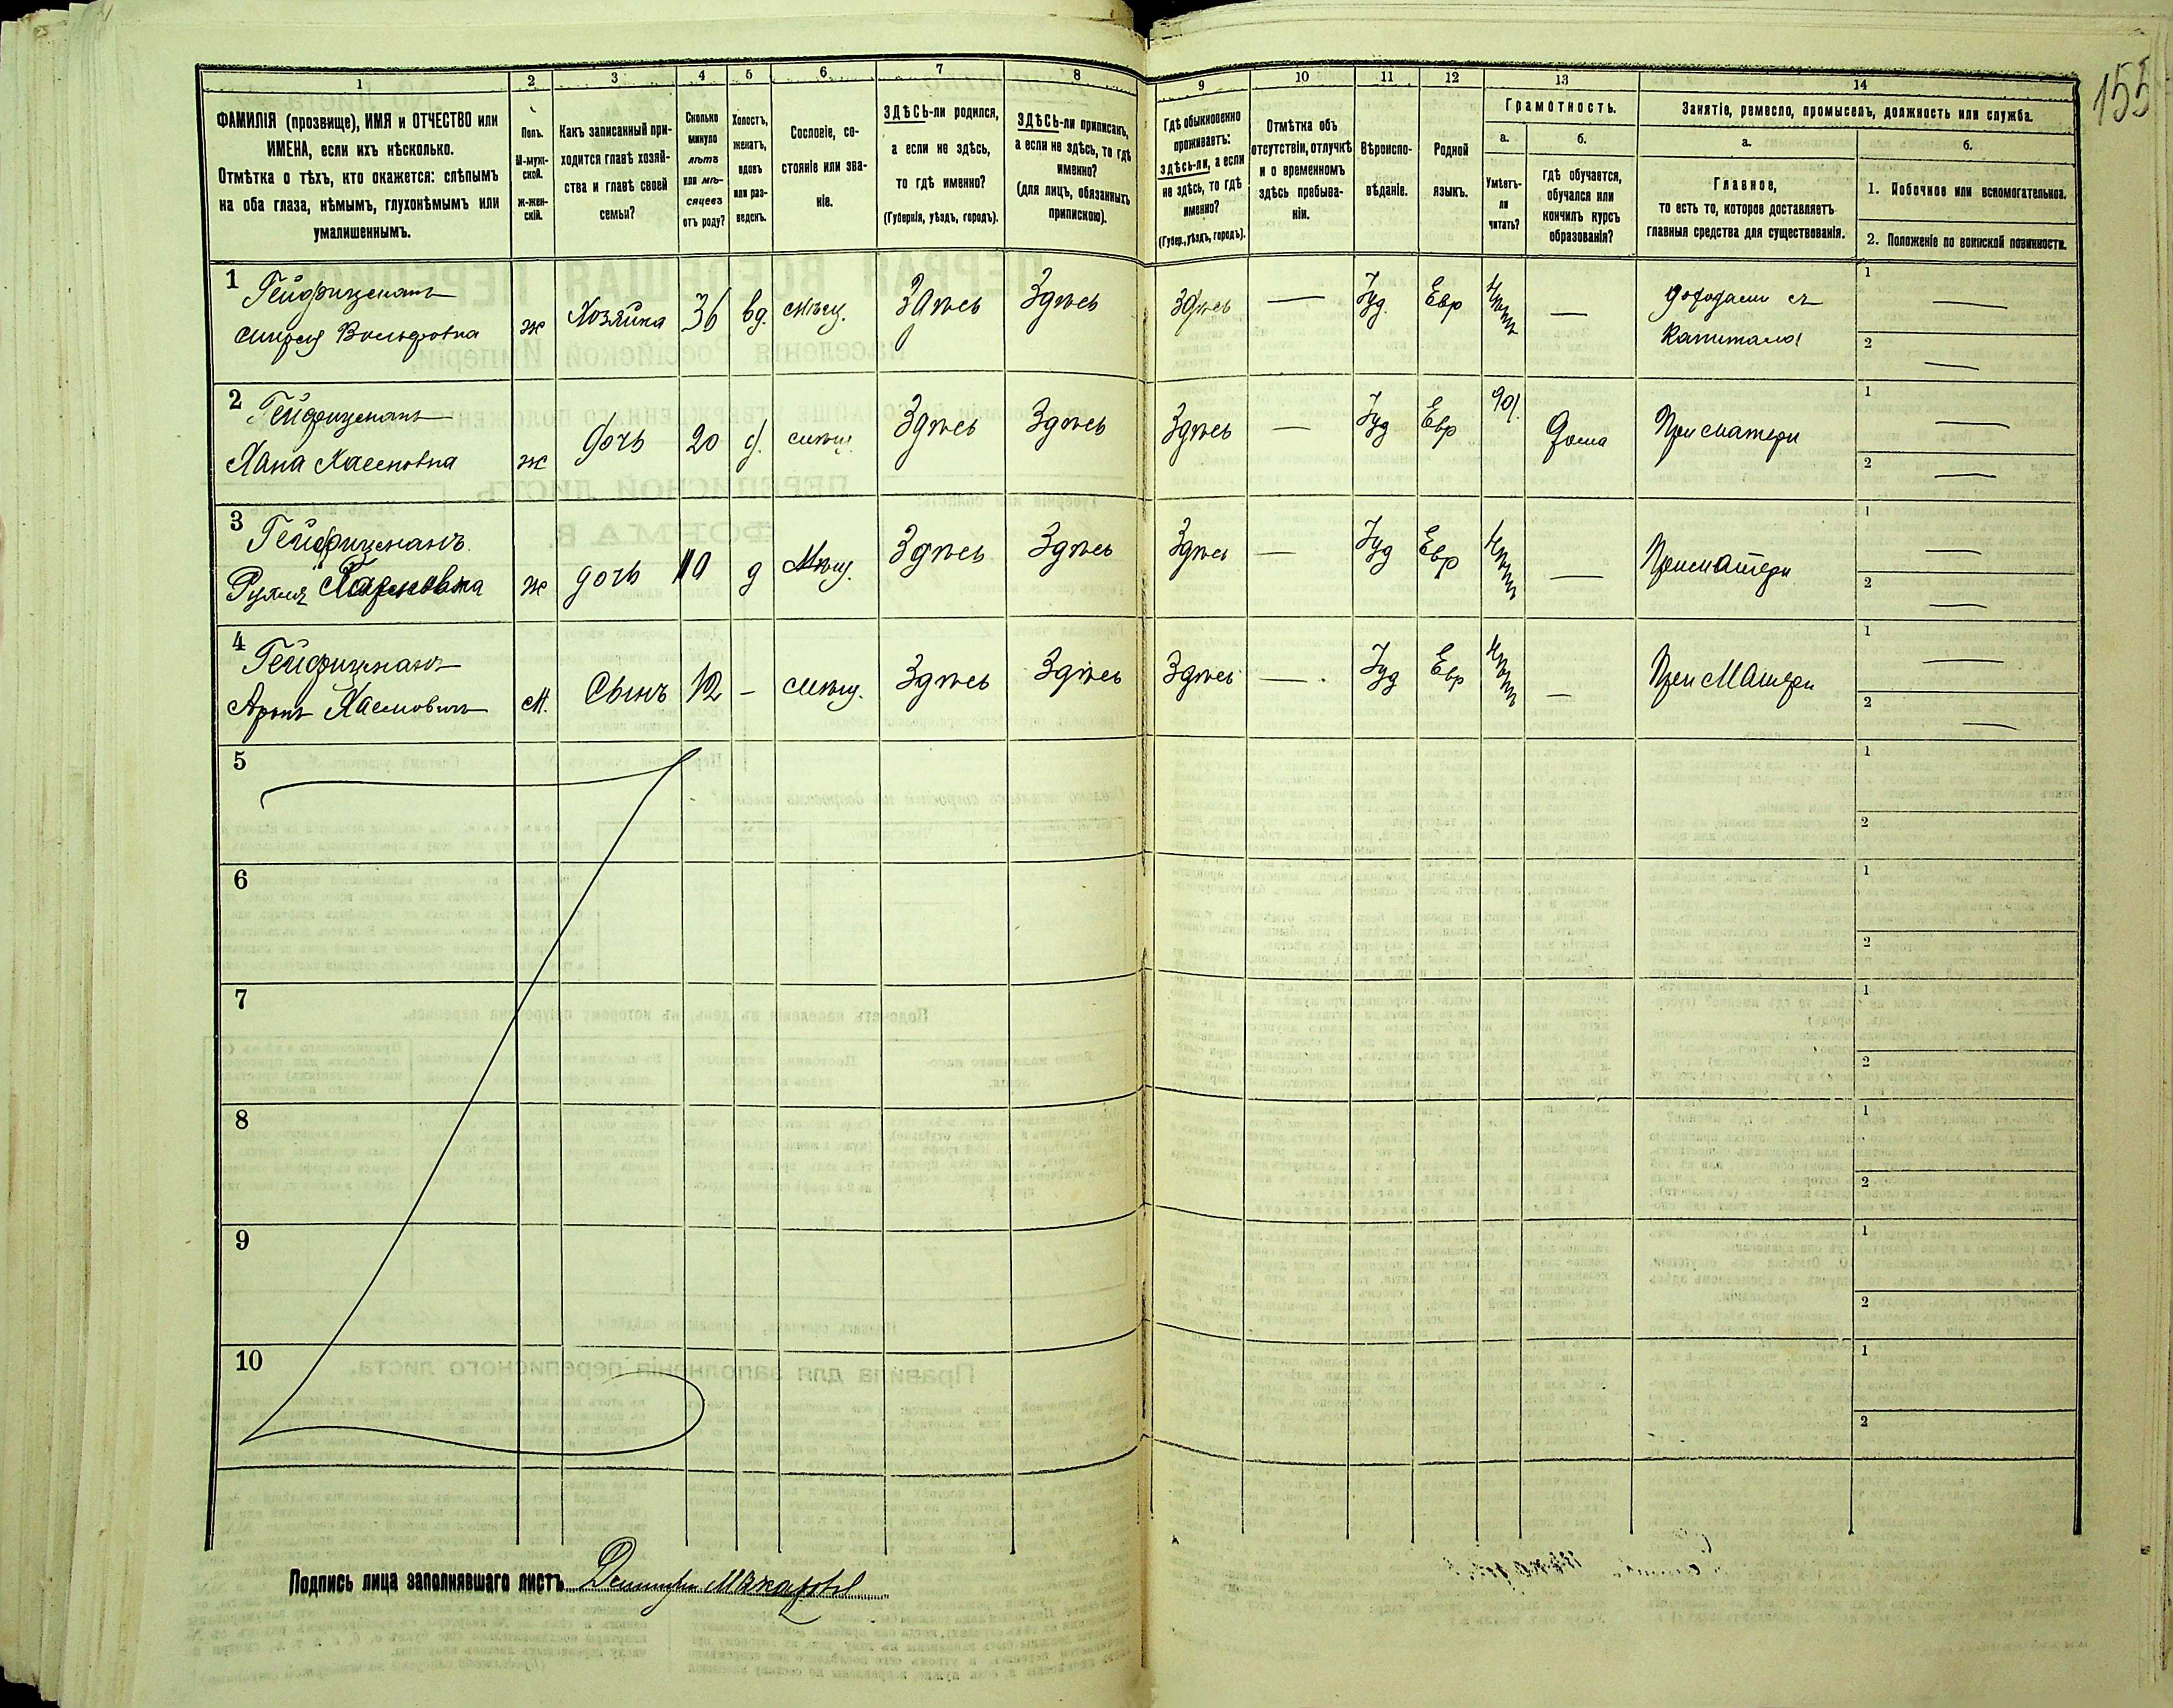 155
1 2 3 4 5 6 7 8 9 10 11 12 13 14
ФАМИЛІЯ (прозвище), ИМЯ и ОТЧЕСТВО или
ИМЕНА, если ихъ нѣсколько.
Отмѣтка о тѣхъ, кто окажется: слѣпымъ
на оба глаза, нѣмымъ, глухонѣмымъ или
умалишеннымъ.
Полъ.
М-муж-
ской.
ж-жен-
скій.
Какъ записанный при-
ходится главѣ хозяй-
ства и главѣ своей
семьи?
Сколько
минуло
лѣтъ
или мѣ-
сяцевъ
отъ роду?
Холостъ,
женатъ,
вдовъ
или раз-
веденъ.
Сословіе, со-
стояніе или зва-
ніе.
ЗДѢСЬ-ли родился,
а если не здѣсь,
то гдѣ именно?
(Губернія, уѣздъ, городъ).
ЗДѢСЬ-ли приписанъ,
а если не здѣсь, то гдѣ
именно?
(для лицъ, обязанныхъ
припискою).
Гдѣ обыкновенно
проживаетъ:
здѣсь-ли, а если
не здѣсь, то гдѣ
именно?
(Губер., уѣздъ, городъ).
Отмѣтка объ
отсутствіи, отлучкѣ
и о временномъ
здѣсь пребыва-
ніи.
Вѣроиспо-
вѣданіе.
Родной
языкъ.
Грамотность.
а.
Умѣетъ-
ли
читать?
б.
гдѣ обучается,
обучался или
кончилъ курсъ
образованія?
Занятіе, ремесло, промыселъ, должность или служба.
а.
Главное,
то есть то, которое доставляетъ
главныя средства для существованія.
б.
1. Побочное или вспомогательное.
2. Положеніе по воинской повинности.
1 Гейфицманъ
Вольфовна
ж Хозяйка 36 вд. мѣщ. Здѣсь Здѣсь Здѣсь — Іуд. Евр —
доходами съ
капитала
1 —
2 —
2 Гейфицманъ
Хана Хаемовна
ж дочь 20 д. мѣщ. Здѣсь Здѣсь Здѣсь — Іуд Евр да. дома При матери
1 —
2 —
3 Гейфицманъ
ж дочь 10 д Мѣщ. Здѣсь Здѣсь Здѣсь — Іуд Евр — При матери
1 —
2 —
4 Гейфицманъ
Аронъ Хаемовичъ
М. Сынъ 12 – Мѣщ. Здѣсь Здѣсь Здѣсь — Іуд Евр — При Матери
1 —
2 —
5
1
2
6
1
2
7
1
2
8
1
2
9
1
2
10
1
2
Подпись лица заполнявшаго листъ